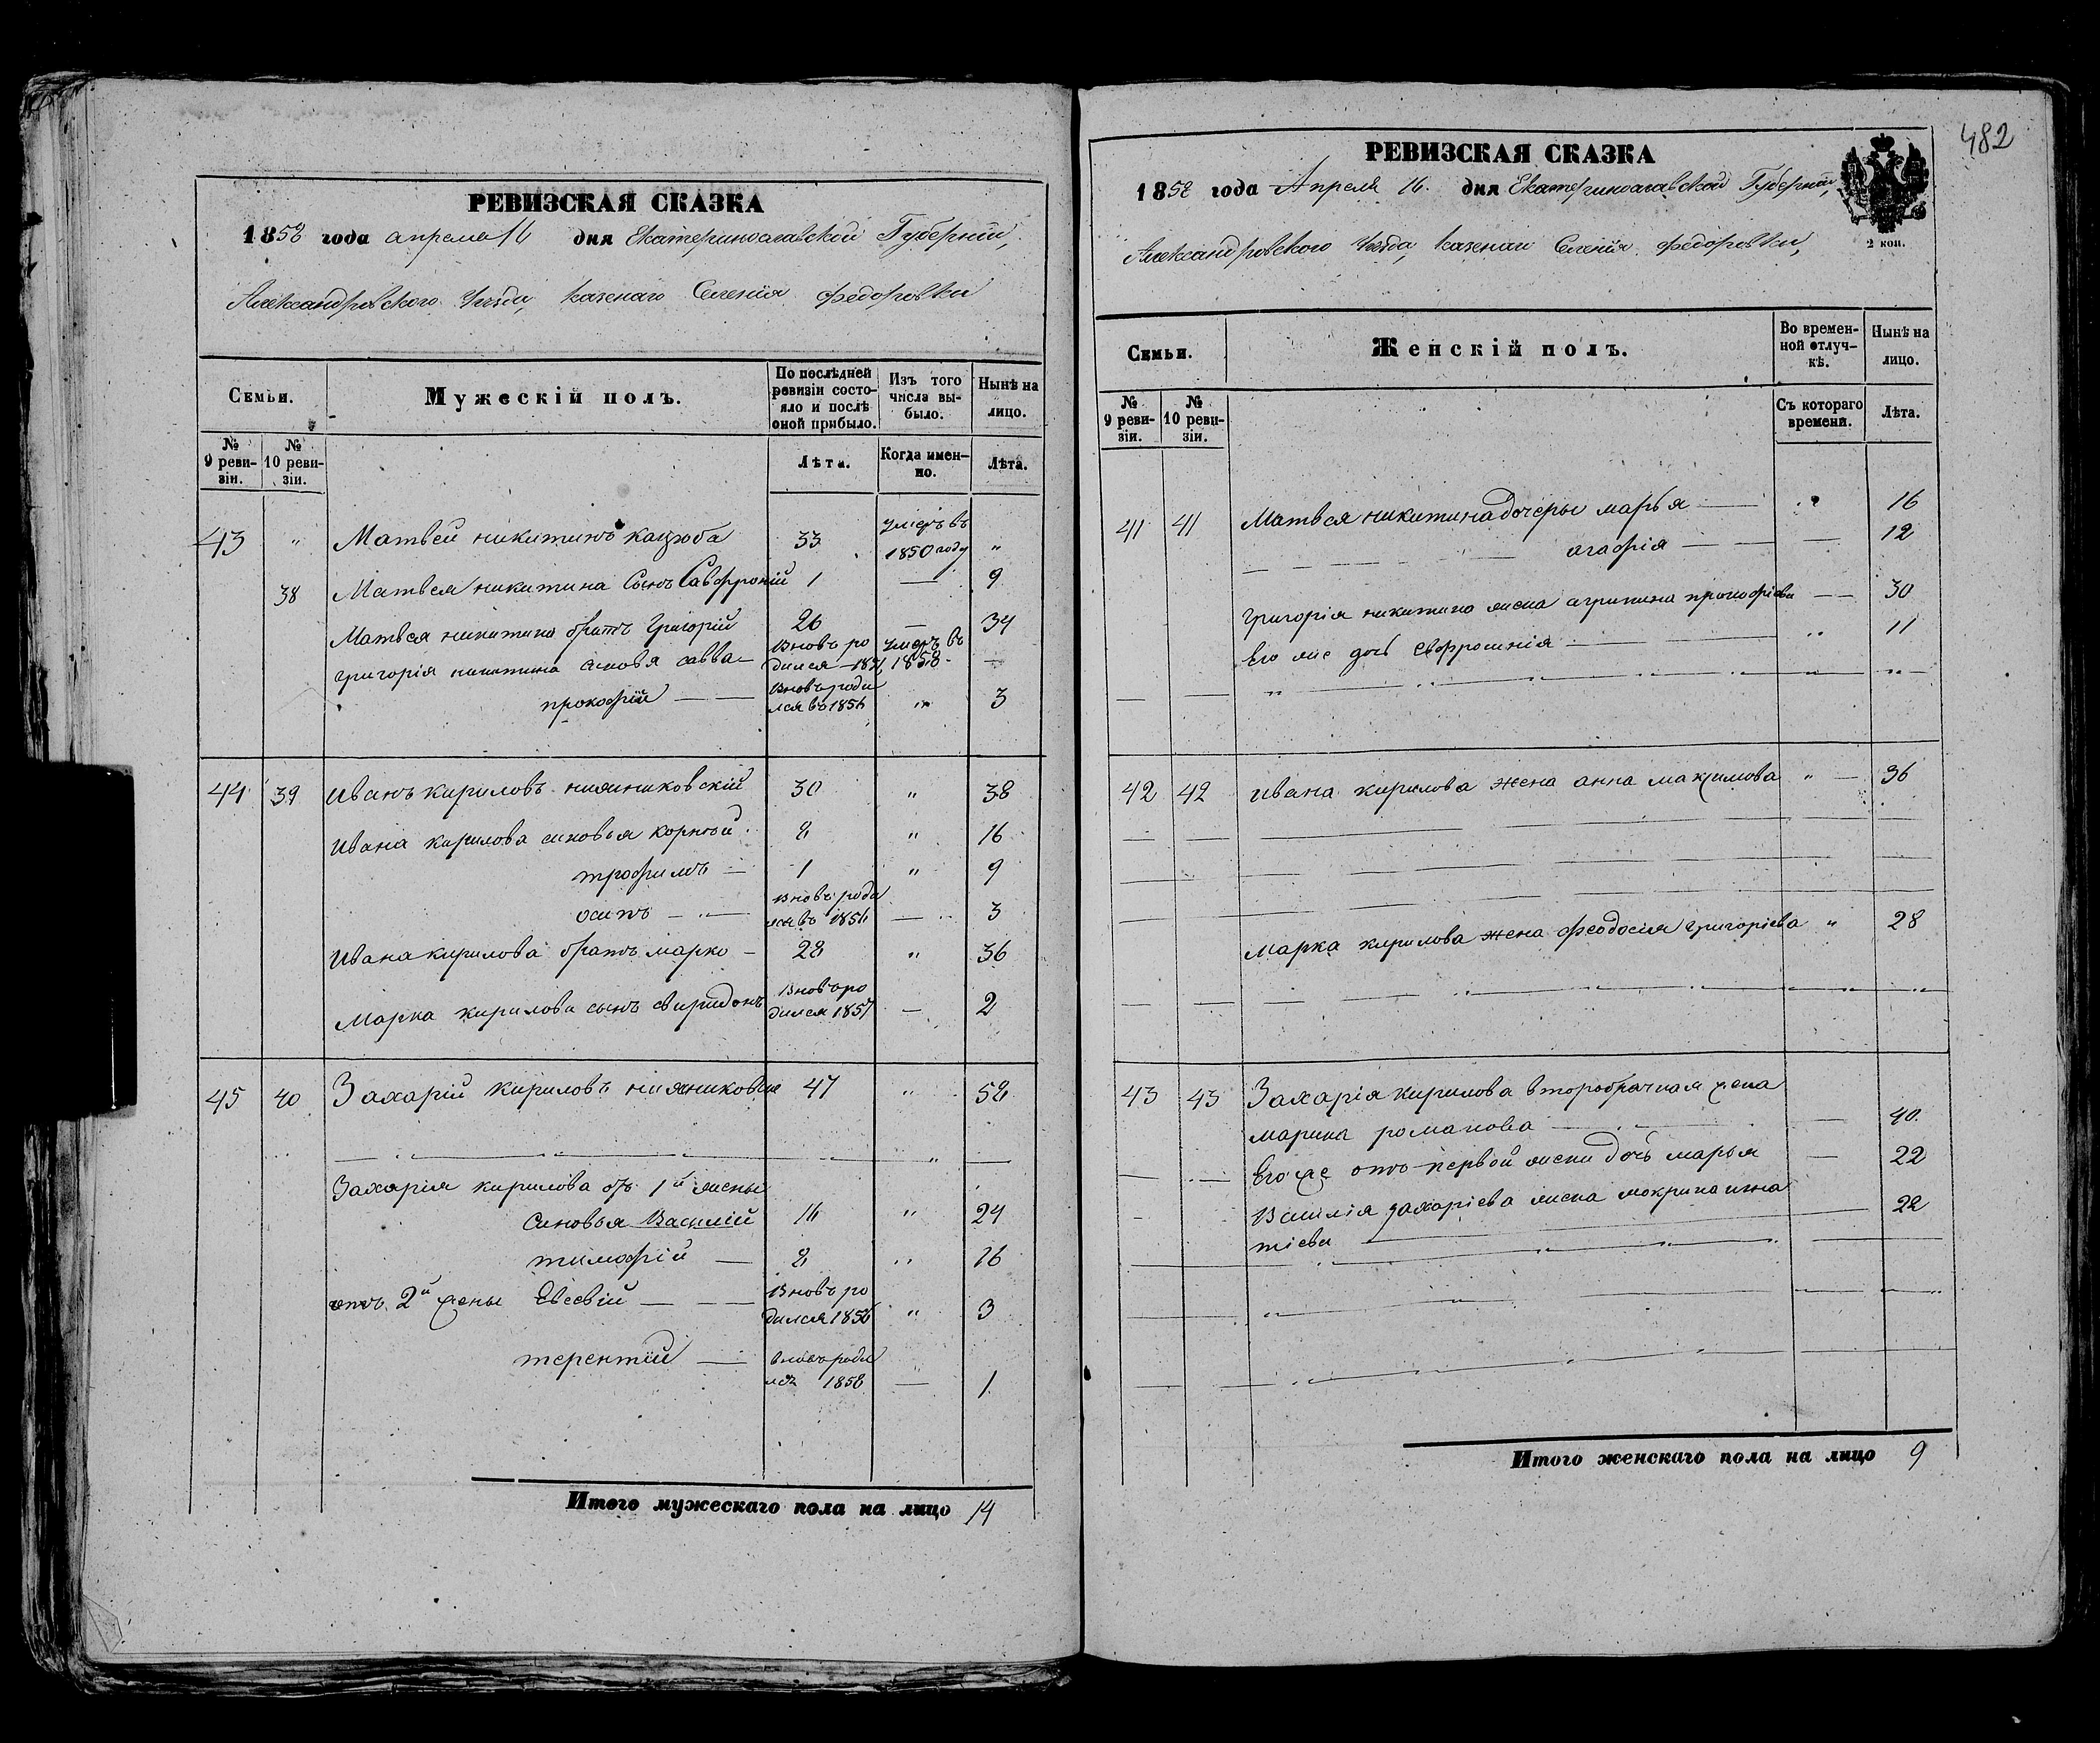 РЕВИЗСКАЯ СКАЗКА
1858 года апреля 16 дня Екатеринославской Губернии,
Александровского Уезда, казенаго Селения федоровки
Семьи.
Мужескій полъ.
По послѣдней ревизіи состояло и послѣ оной прибыло.
Изъ того числа выбыло.
Нынѣ на лицо.
№ 9 ревизіи.
№ 10 ревизіи.
Лѣта.
Когда именно.
Лѣта.
43 " Матвей никитинъ кацюба 33 умеръ въ 1850 году "
38 Матвея никитина Сынъ Савфроній 1 — 9
Матвея никитина братъ Григорій 26 — 34
григорія никитина синовя савва — Вновь родился — 1851 умеръ въ 1858 —
прокофій — Вновь родился въ 1856 " 3
44 39 Иванъ кириловъ нижниковскій 30 " 38
Ивана кирилова синовья корней 8 " 16
трофимъ — 1 " 9
осипъ — Вновь родился въ 1856 — 3
Ивана кирилова братъ марко — 28 " 36
Марка кирилова сынъ свиридонъ Вновь родился 1857 — 2
45 40 Захарій кириловъ 47 " 58
Захарія кирилова отъ 1й жены
Синовья Василій 16 " 24
тимофій — 8 " 16
отъ 2й жены Евсевій — Вновь родился 1856 " 3
терентій — вновь родился 1858 — 1
Итого мужескаго пола на лицо 14
482
РЕВИЗСКАЯ СКАЗКА
1858 года Апреля 16 дня Екатеринославской Губернии,
2 коп.
Александровского Уезда, казенаи Селенія федоровки,
Семьи.
Женскій полъ.
Во временной отлучкѣ.
Нынѣ на лицо.
№ 9 ревизіи.
№ 10 ревизіи.
Съ котораго времени.
Лѣта.
41 41 Матвея никитина дочеры марья — " 16
агафія — — 12
Григорія никитина жена агрипина прокофіева — 30
Его же дочь Евфросинія — " 11
42 42 ивана кирилова жена анна максимова " — 36
марка кирилова жена феодосія григоріева " 28
43 43 Захарія кирилова второбрачная жена
марина романова — 40.
Его же отъ первой жени дочь марья — 22
Василія захаріева жена мокрина игна
тіева — 22
Итого женскаго пола на лицо 9